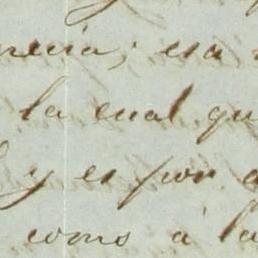 esa
la cual qu
y es por
como á la